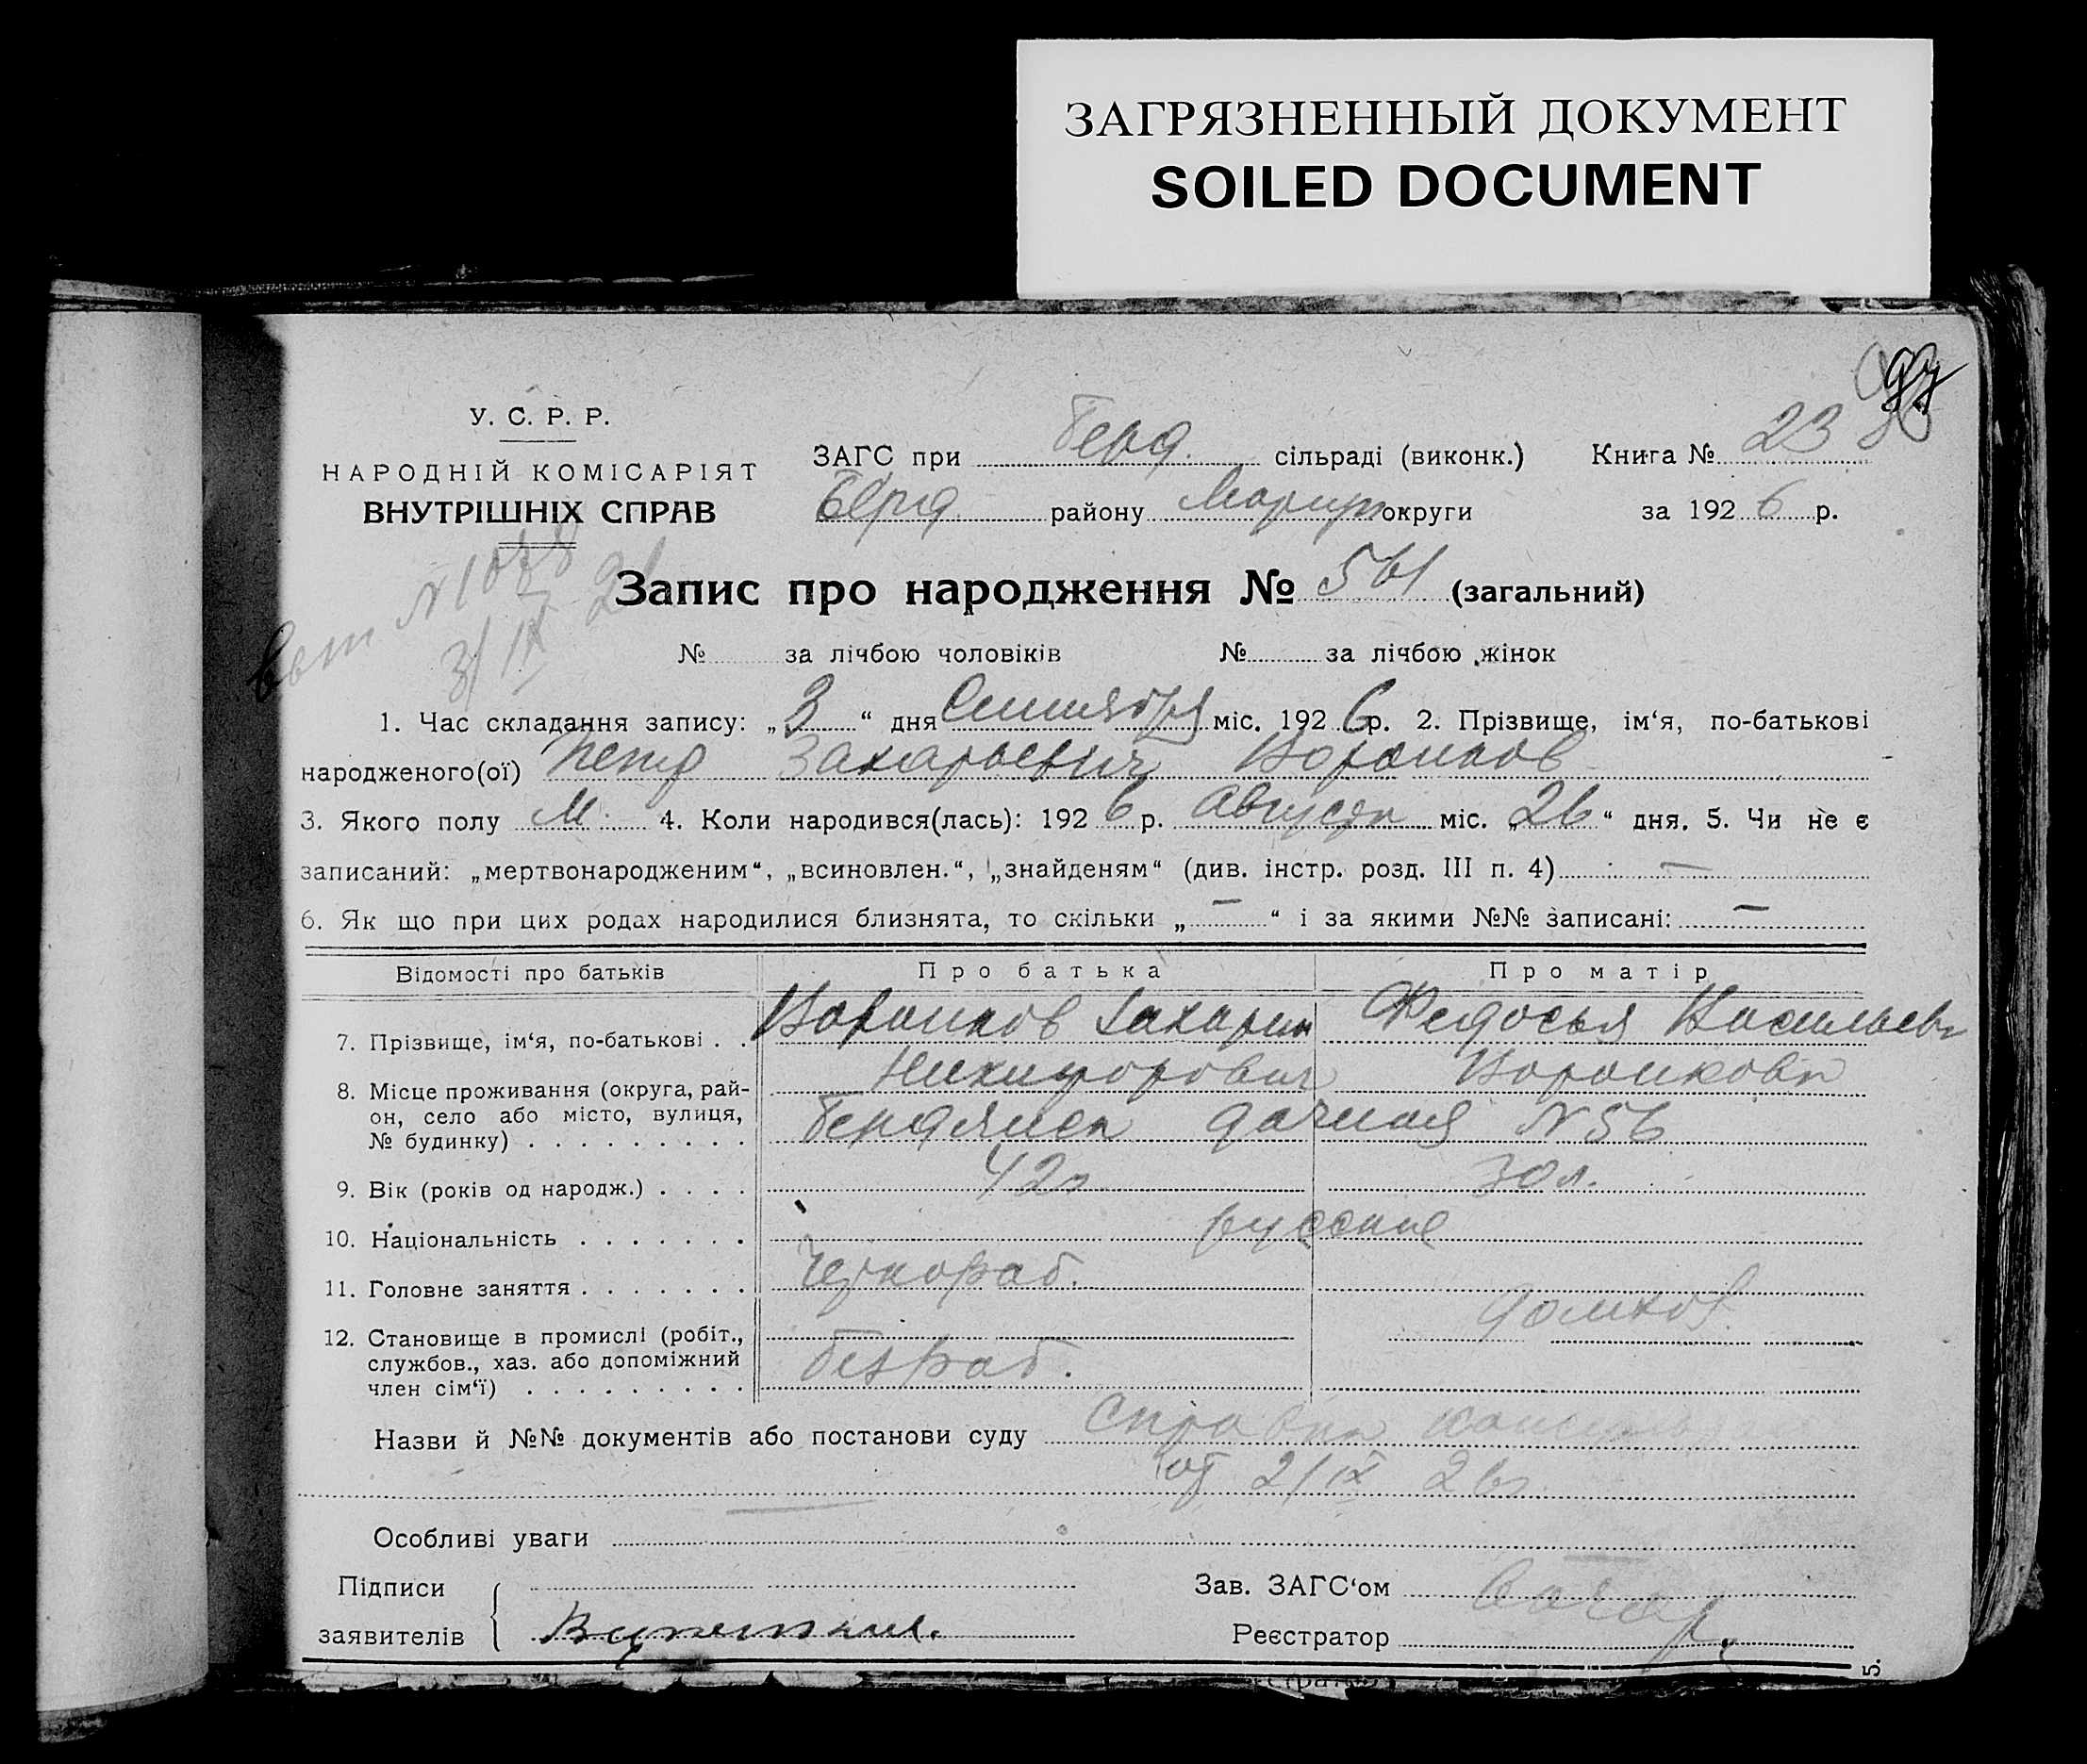 ЗАГРЯЗНЕННЫЙ ДОКУМЕНТ
SOILED DOCUMENT
У. С. Р. Р.
НАРОДНІЙ КОМІСАРІЯТ
ВНУТРІШНІХ СПРАВ
ЗАГС при Берд. сільраді (виконк.) Книга № 23
Берд. району Мариуп. округи за 1926 р.
Запис про народження № 561 (загальний)
№ за лічбою чоловіків № за лічбою жінок
1. Час складання запису: „3“ дня Сентября міс. 1926 р. 2. Прізвище, ім‘я, по-батькові
народженого(ої) Петр Захарьевич
3. Якого полу М. 4. Коли народився(лась): 1926 р. Августа міс. „26“ дня. 5. Чи не є
записаний: „мертвонародженим“, „всиновлен.“, „знайденям“ (див. інстр. розд. III п. 4) —
6. Як що при цих родах народилися близнята, то скільки „—“ і за якими №№ записані: —
Відомості про батьків Про батька Про матір
7. Прізвище, ім‘я, по-батькові . . Захарий Федосья Васильев
Никифорович
8. Місце проживання (округа, рай-
он, село або місто, вулиця,
№ будинку) . . . . . . . . . Бердянск дачная N 56
9. Вік (років од народж.) . . . . 42 30 л.
10. Національність . . . . . . . русские
11. Головне заняття . . . . . . . Чернораб. домхоз.
12. Становище в промислі (робіт.,
службов., хаз. або допоміжний
член сім‘ї) . . . . . . . . . безраб.
Назви й №№ документів або постанови суду Справка
от 2/IX 26
Особливі уваги
Підписи
заявителів
Зав. ЗАГС‘ом
Реєстратор
5.